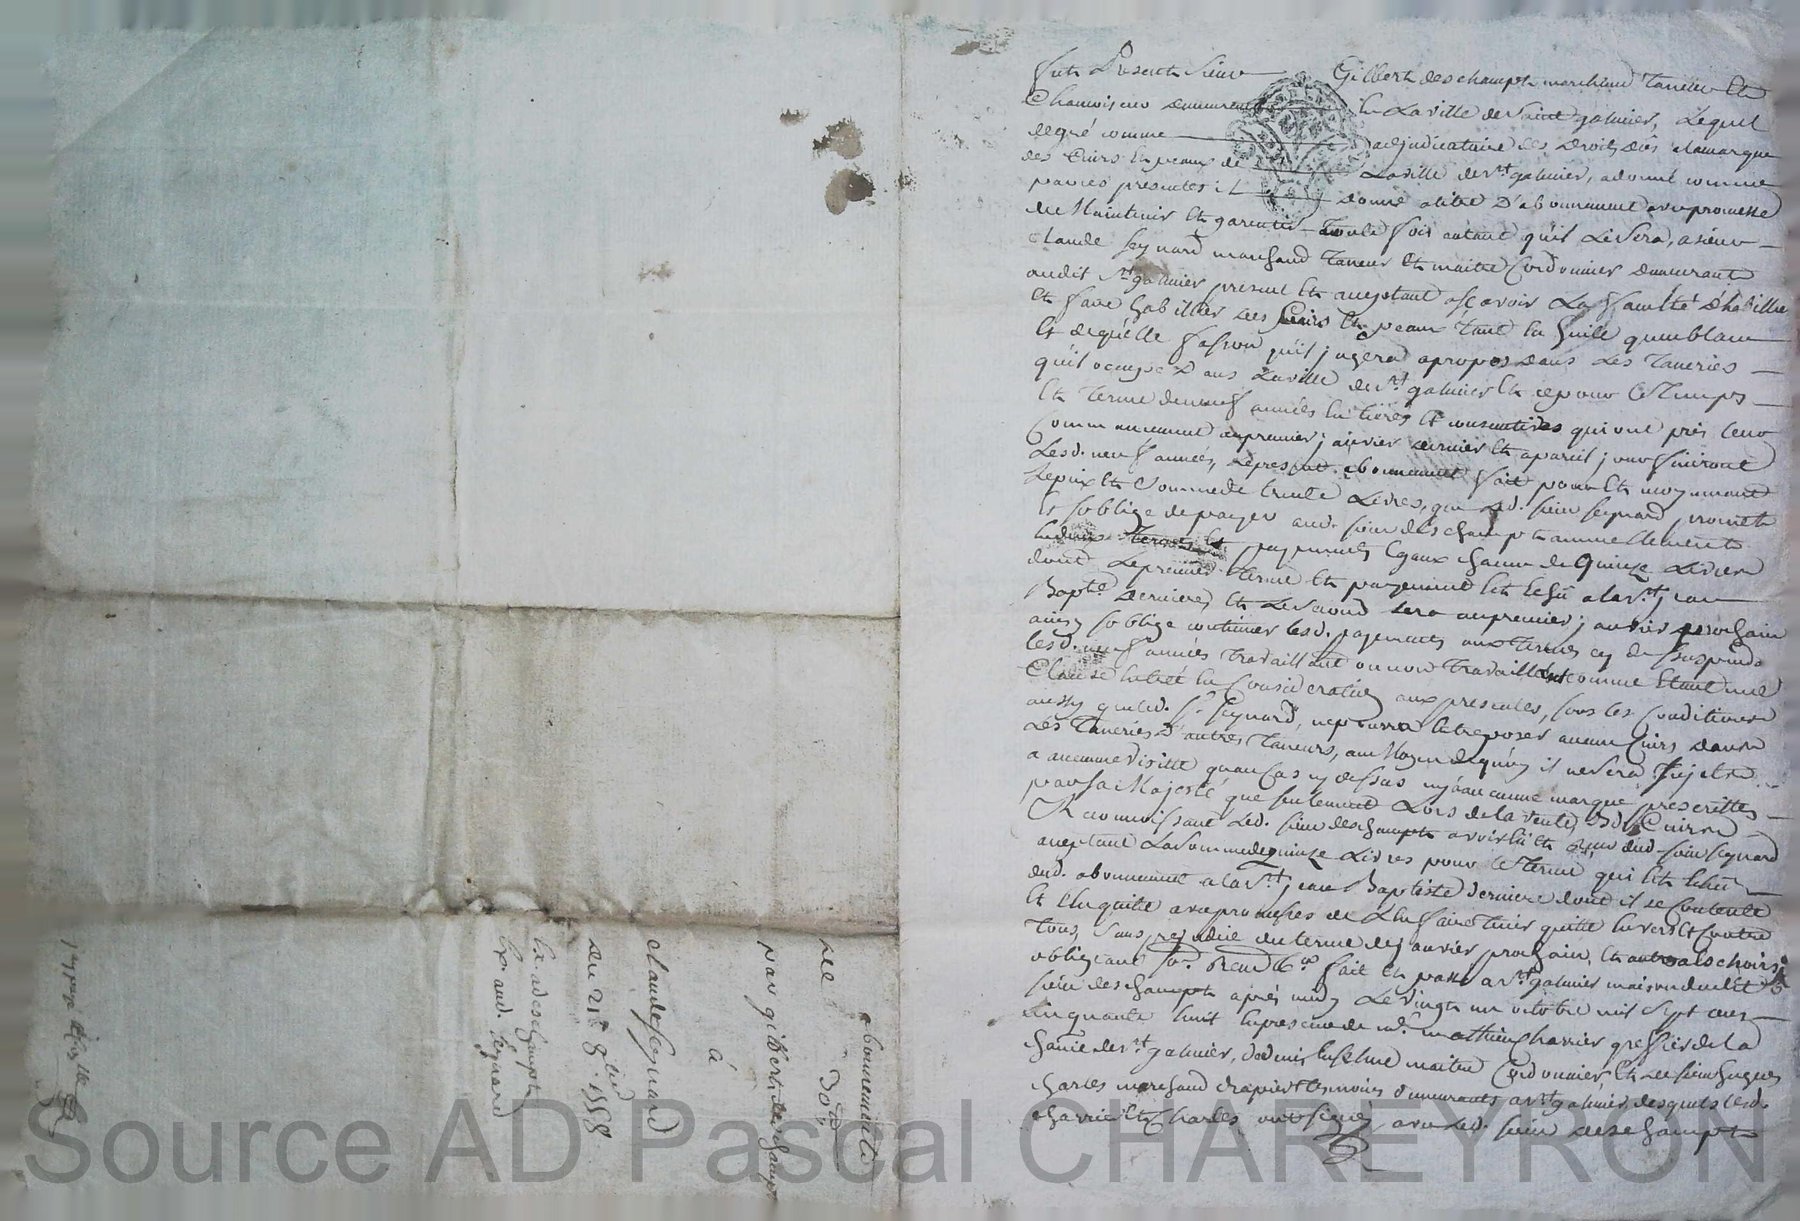 fut Present Sieur Gilbert deschampt marchand Taneur Et
Chamoiseur demeurant En La ville de Saint galmier, Lequel
de gré comme adjudicataire des Droits de la marque
des Cuirs En peaux de La ville de st galmier, a donné comme
par ces presentes il donne a titre D'abonnement avec promesse
de Maintenir Et garentir toute fois autant qu'il Le Sera, a sieur
Claude Seynard marchand Taneur Et maitre Cordonnier demeurant
audit st galmier present Et aceptant asçavoir La faculté d'habiller
Et faire habiller Les Cuirs Et peaux Tant En huile qu'en blanc
Et de quelle fasson qu'il jugera apropos Dans Les Taneries
qu'il ocupe Dans La ville de st galmier Et ce pour Le Temps
Et Terme de neuf années Entieres Et consecutives qui ont pris leur
Commancement au premier janvier dernier Et a pareil jour finiront
Lesd. neuf années, Le present abonnement fait pour Et moyennant
Le prix Et Somme de trente Livres, que Led. sieur Seynard promet
Et s'oblige de payer aud. sieur deschampt annuellement
En deux Termes Et payements Egaux chacun de Quinze Livres
dont Le premier Terme Et payement Est Echû a la st jean
Bapte derniere Et Le Second sera au premier janvier prochain
ainsy s'oblige continuer lesd. payements aux Termes cy dessus pend.
lesd. neuf années Travaillant ou non Travaillant comme Etant une
Clause Entrée En Consideration aux presentes, sous les Conditions
aussy que led. sr Seynard, ne pourra Entreposer aucun Cuirs dans
Les Taneries D'autres Taneurs, au Moyen de quoy il ne Sera Sujet
a aucune visitte qu'au Cas cy dessus ny a aucune marque prescrittes
par Sa Majesté que seulement Lors de la vente desd. Cuirs
Reconnoissant Led. sieur deschampt avoir Eû Et Reçu dud. sieur Seynard
aceptant La Somme de quinze Livres pour le Terme qui Est Echû
dud. abonnement a la st jean Baptiste derniere dont il se Contente
Et L'En quitte avec promesses de L'En faire Tenir quitte Envers Et Contre
Tous, Sans prejudice du terme de janvier prochain, Et autres choses
obligeant &a. Renon. &a. fait Et passé a st galmier maison dudit
sieur deschampt après midy Le vingt un octobre mil Sept cens
cinquante huit En presence de me mathieu Charrier greffier de la
Chatnie de st galmier, Et maitre Cordonnier Et de sieur hugues
Charles marchand drapier Temoins demeurants a st galmier, desquels lesd.
Charrier Et Charles ont signé, avec Led. sieur deschampt
abonnement
De 30 ll
par gilbert deschampt
à
claude Seynard
du 21e 8bre 1758
Ex. a deschampt
Ex. aud. Seynard
Source AD Pascal CHAREYRON